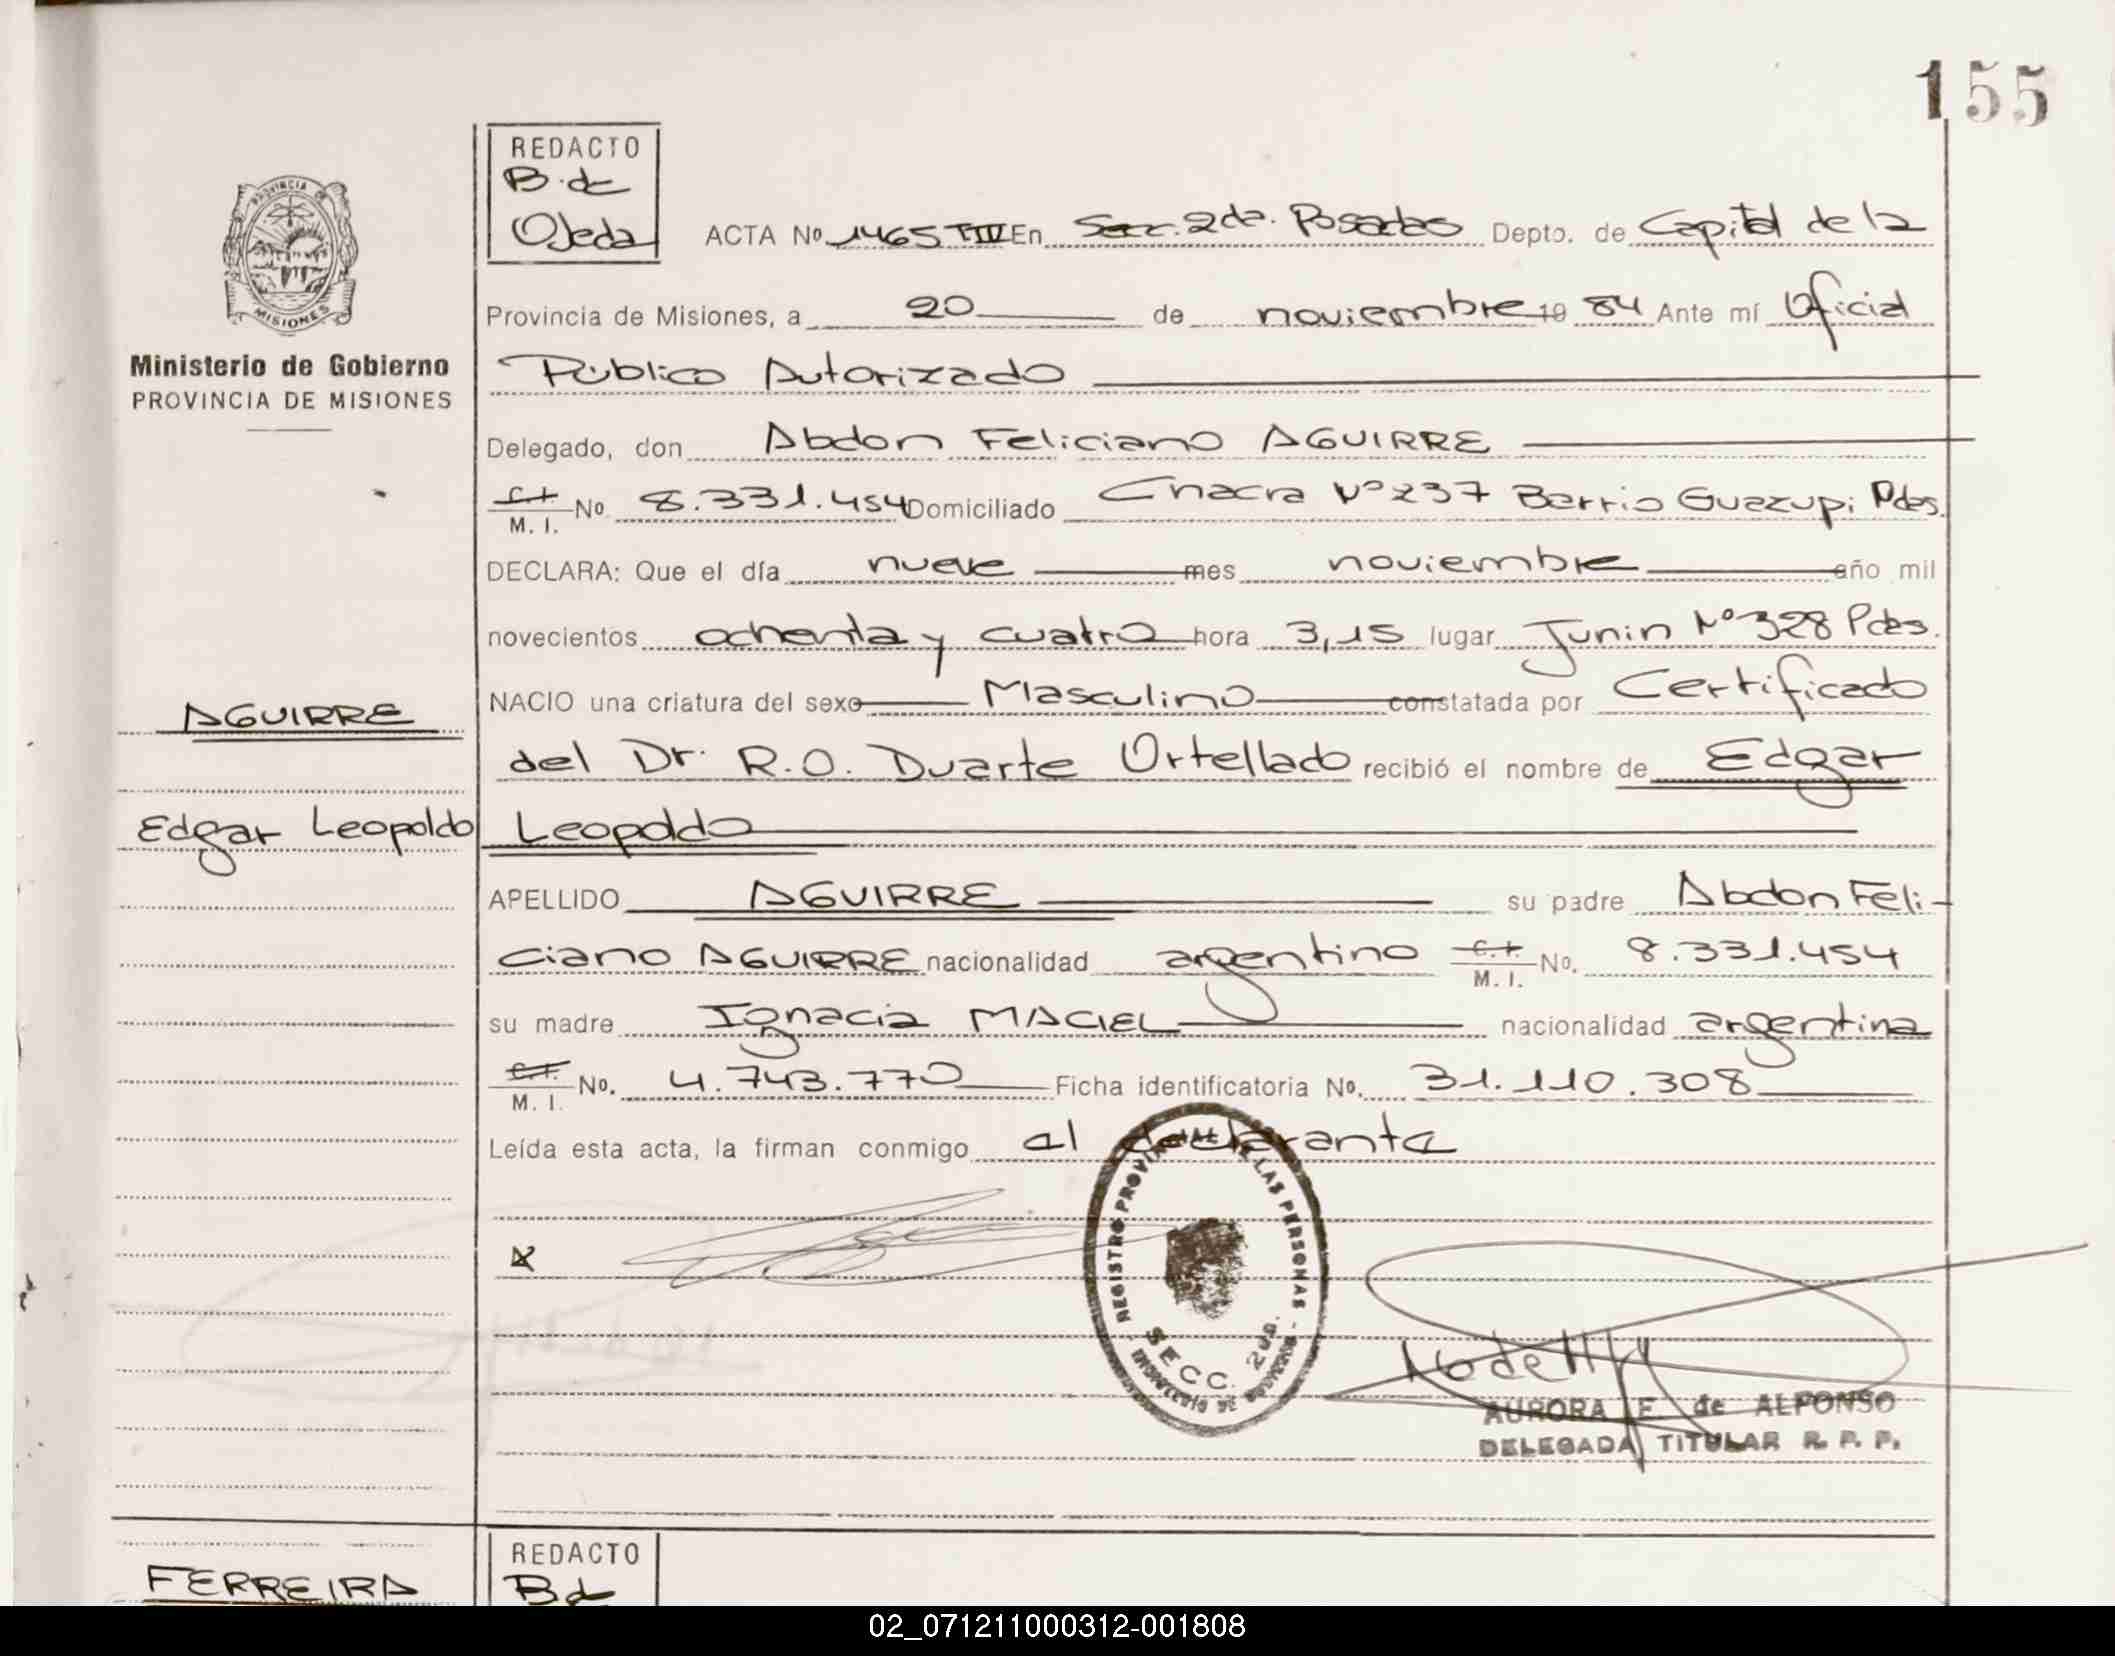 155
REDACTO
B. de
Ojeda
ACTA No 1465 T.IV En Secc. 2da. Posadas Depto. de Capital de la
PROVINCIA DE
MISIONES
Provincia de Misiones, a 20 de noviembre 19 84 Ante mí Oficial
Ministerio de Gobierno
PROVINCIA DE MISIONES
Público Autorizado
Delegado, don Abdon Feliciano AGUIRRE
C.I. M. I. No 8.331.454 Domiciliado Chacra Nº 237 Barrio Guazupi Pdas.
DECLARA: Que el día nueve mes noviembre año mil
novecientos ochenta y cuatro hora 3,15 lugar Junin Nº 328 Pdas.
NACIO una criatura del sexo Masculino constatada por Certificado
AGUIRRE
del Dr. R.O. Duarte Ortellado recibió el nombre de Edgar
Edgar Leopoldo
Leopoldo
APELLIDO AGUIRRE su padre Abdon Feli-
ciano AGUIRRE nacionalidad argentino C.I. M. I. No. 8.331.454
su madre Ignacia MACIEL nacionalidad argentina
C.I. M. I. No. 4.743.770 Ficha identificatoria No. 31.110.308
Leída esta acta, la firman conmigo el declarante
REGISTRO PROVINCIAL DE LAS PERSONAS
SECC. 2da.
AURORA F. de ALFONSO
DELEGADA TITULAR R. P. P.
FERREIRA
REDACTO
B de
02_071211000312-001808